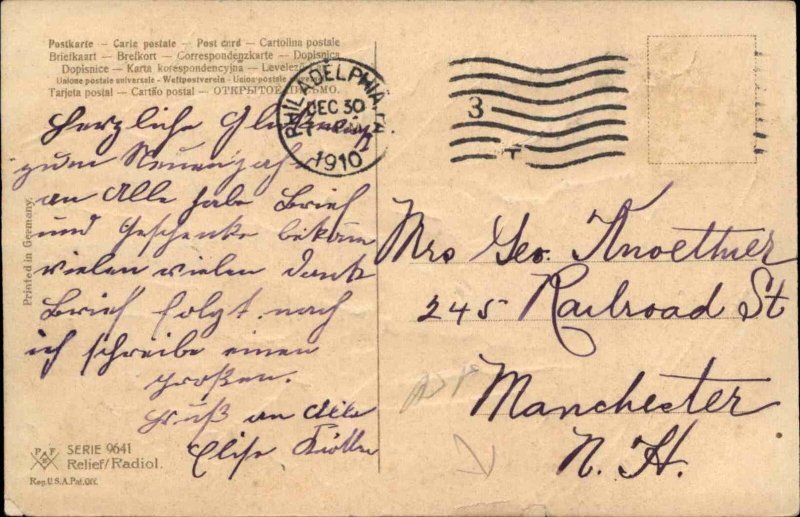 Postkarte – Carte postale – Post card – Cartolina postale
Briefkaart – Brefkort – Correspondenzkarte – Dopisnica
Dopisnice – Karta korespondencyjna – Levelező
Unione postale universale – Weltpostverein – Union postale
Tarjeta postal – Cartão postal – ОТКРЫТОЕ ПИСЬМО.
PHILADELPHIA, PA.
DEC 30
1910
3
Herzliche
zum Neuenjahr
an Alle habe Brief
und Geschenke bekom
vielen vielen Dank
Brief folgt nach
ich schreibe einen
großen.
Gruß an Alle
Elise
Printed in Germany.
Mrs Geo. Knoettner
245 Railroad St
Manchester
N. H.
P F
SERIE 9641
Relief/Radiol.
Reg. U.S.A. Pat. Off.